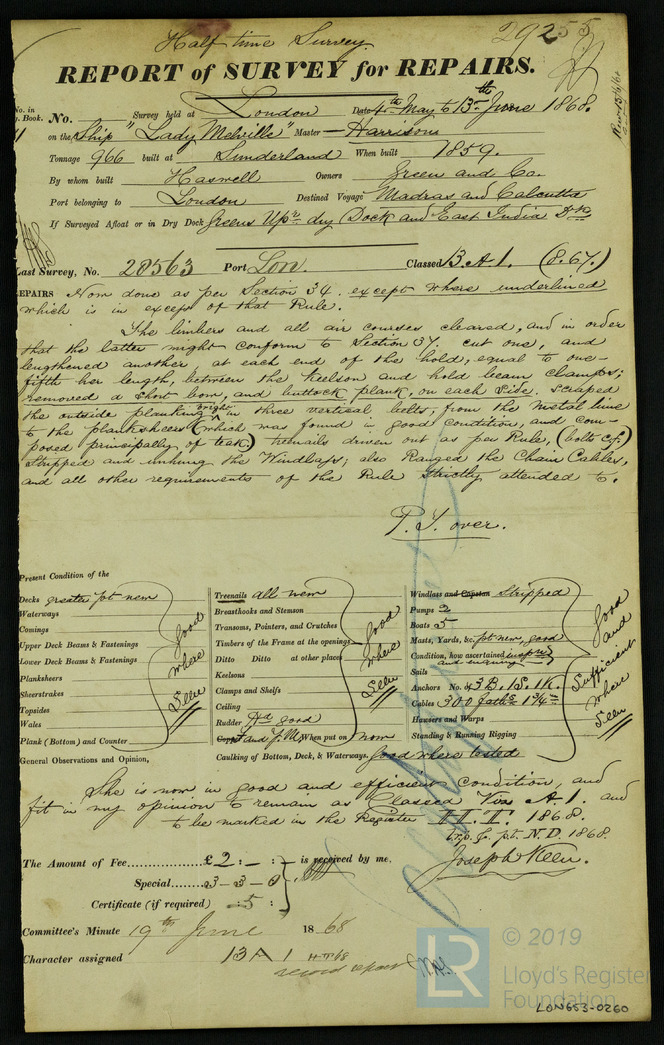 Half time Survey
29255
REPORT of SURVEY for REPAIRS.
No. in
. Book. No. Survey held at London Date 4th May to 13th June 1868
on the Ship "Lady Melville" Master Harrison
Tonnage 966 built at Sunderland When built 1859.
By whom built Haswell Owners Green and Co.
Port belonging to London Destined Voyage Madras and Calcutta
If Surveyed Afloat or in Dry Dock Greens Upr dry Dock and East India Dk
Last Survey, No. 28563 Port Lon. Classed 13 A 1. (8.67.)
REPAIRS Now done as per Section 34. except where underlined
which is in excess of that Rule.
The limbers and all air courses cleared, and in order
that the latter might conform to Section 37. cut one, and
lengthened another at each end of the hold, equal to one-
fifth her length, between the keelson and hold beam clamps;
removed a short bow, and buttock plank, on each side. scraped
the outside planking bright in three vertical belts, from the metal line
to the planksheers (which was found in good condition, and com-
posed principally of teak) trenails driven out as per Rule, (bolts c.f.)
Stripped and unhung the Windlass; also Ranged the Chain Cables,
and all other requirements of the Rule strictly attended to.
P. T. over.
Present Condition of the
Decks greater pt new
Waterways
Comings
Upper Deck Beams & Fastenings
Lower Deck Beams & Fastenings
Planksheers
Sheerstrakes
Topsides
Wales
Plank (Bottom) and Counter
good where Seen
Treenails all new
Breasthooks and Stemson
Transoms, Pointers, and Crutches
Timbers of the Frame at the openings
Ditto Ditto at other places
Keelsons
Clamps and Shelfs
Ceiling
Rudder good
Copper and Y.M. When put on now
Caulking of Bottom, Deck, & Waterways. good where tested
good where Seen
Windlass and Capstan Stripped
Pumps 2
Boats 5
Masts, Yards, &c. pt new, good
Condition, how ascertained
and enquiry
Sails
Anchors No. 3 B. 1 S. 1 K.
Cables 300 faths 1 3/4 in
Hawsers and Warps
Standing & Running Rigging
good and Sufficient where Seen
General Observations and Opinion,
She is now in good and efficient condition, and
fit in my opinion to remain as Classed Viz A. 1. and
to be marked in the Register H. T. 1868.
pt. N. D. 1868.
Joseph Keen.
The Amount of Fee £ 2 : - : - is received by me.
Special 3 - 3 - 0
Certificate (if required) : 5 :
Committee's Minute 19th June 1868
Character assigned 13 A 1 HT 68
© 2019
LR
Lloyd's Register
Foundation
LON653-0260